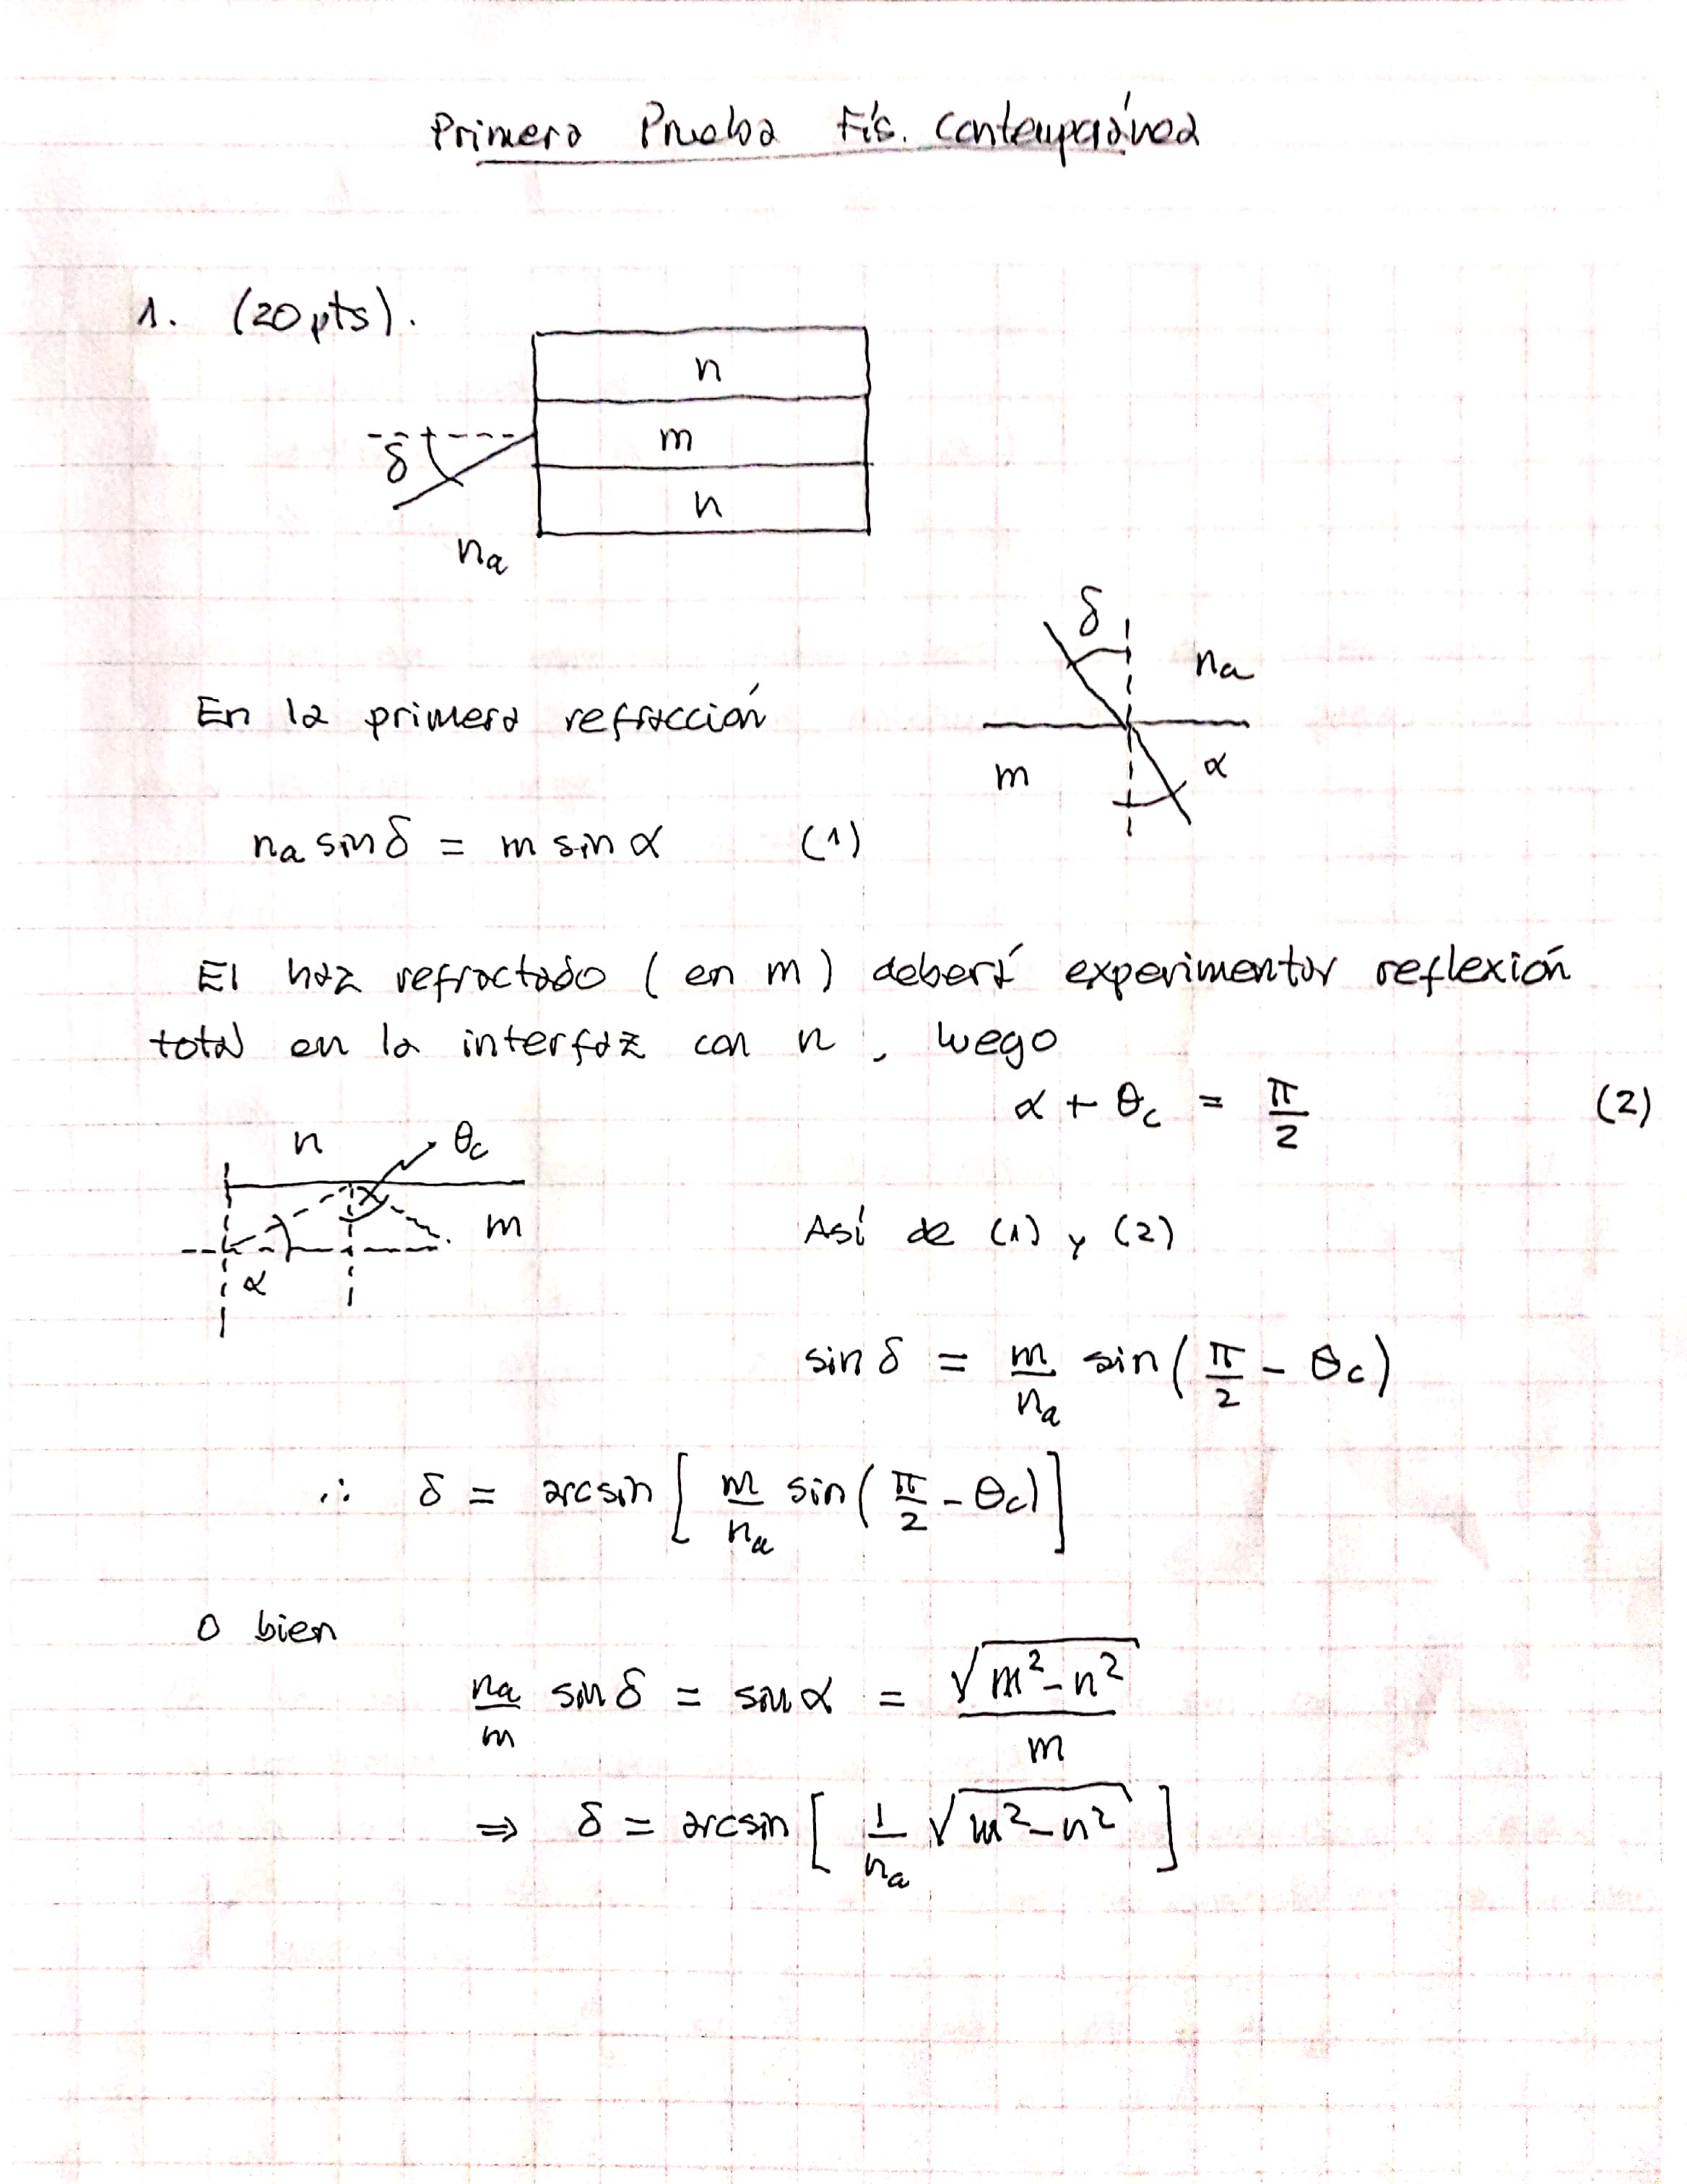 Primera Prueba Fís. Contemporánea
1. (20 pts).
n
m
n
δ
na
δ
na
En la primera refracción
m
α
na sin δ = m sin α (1)
El haz refractado (en m) deberá experimentar reflexión
total en la interfaz con n, luego
α + θc = π/2 (2)
n
θc
m
α
Así de (1) y (2)
sin δ = m/na sin(π/2 - θc)
∴ δ = arcsin [ m/na sin(π/2 - θc) ]
O bien
na/m sin δ = sin α = √(m² - n²)/m
⇒ δ = arcsin [ 1/na √(m² - n²) ]